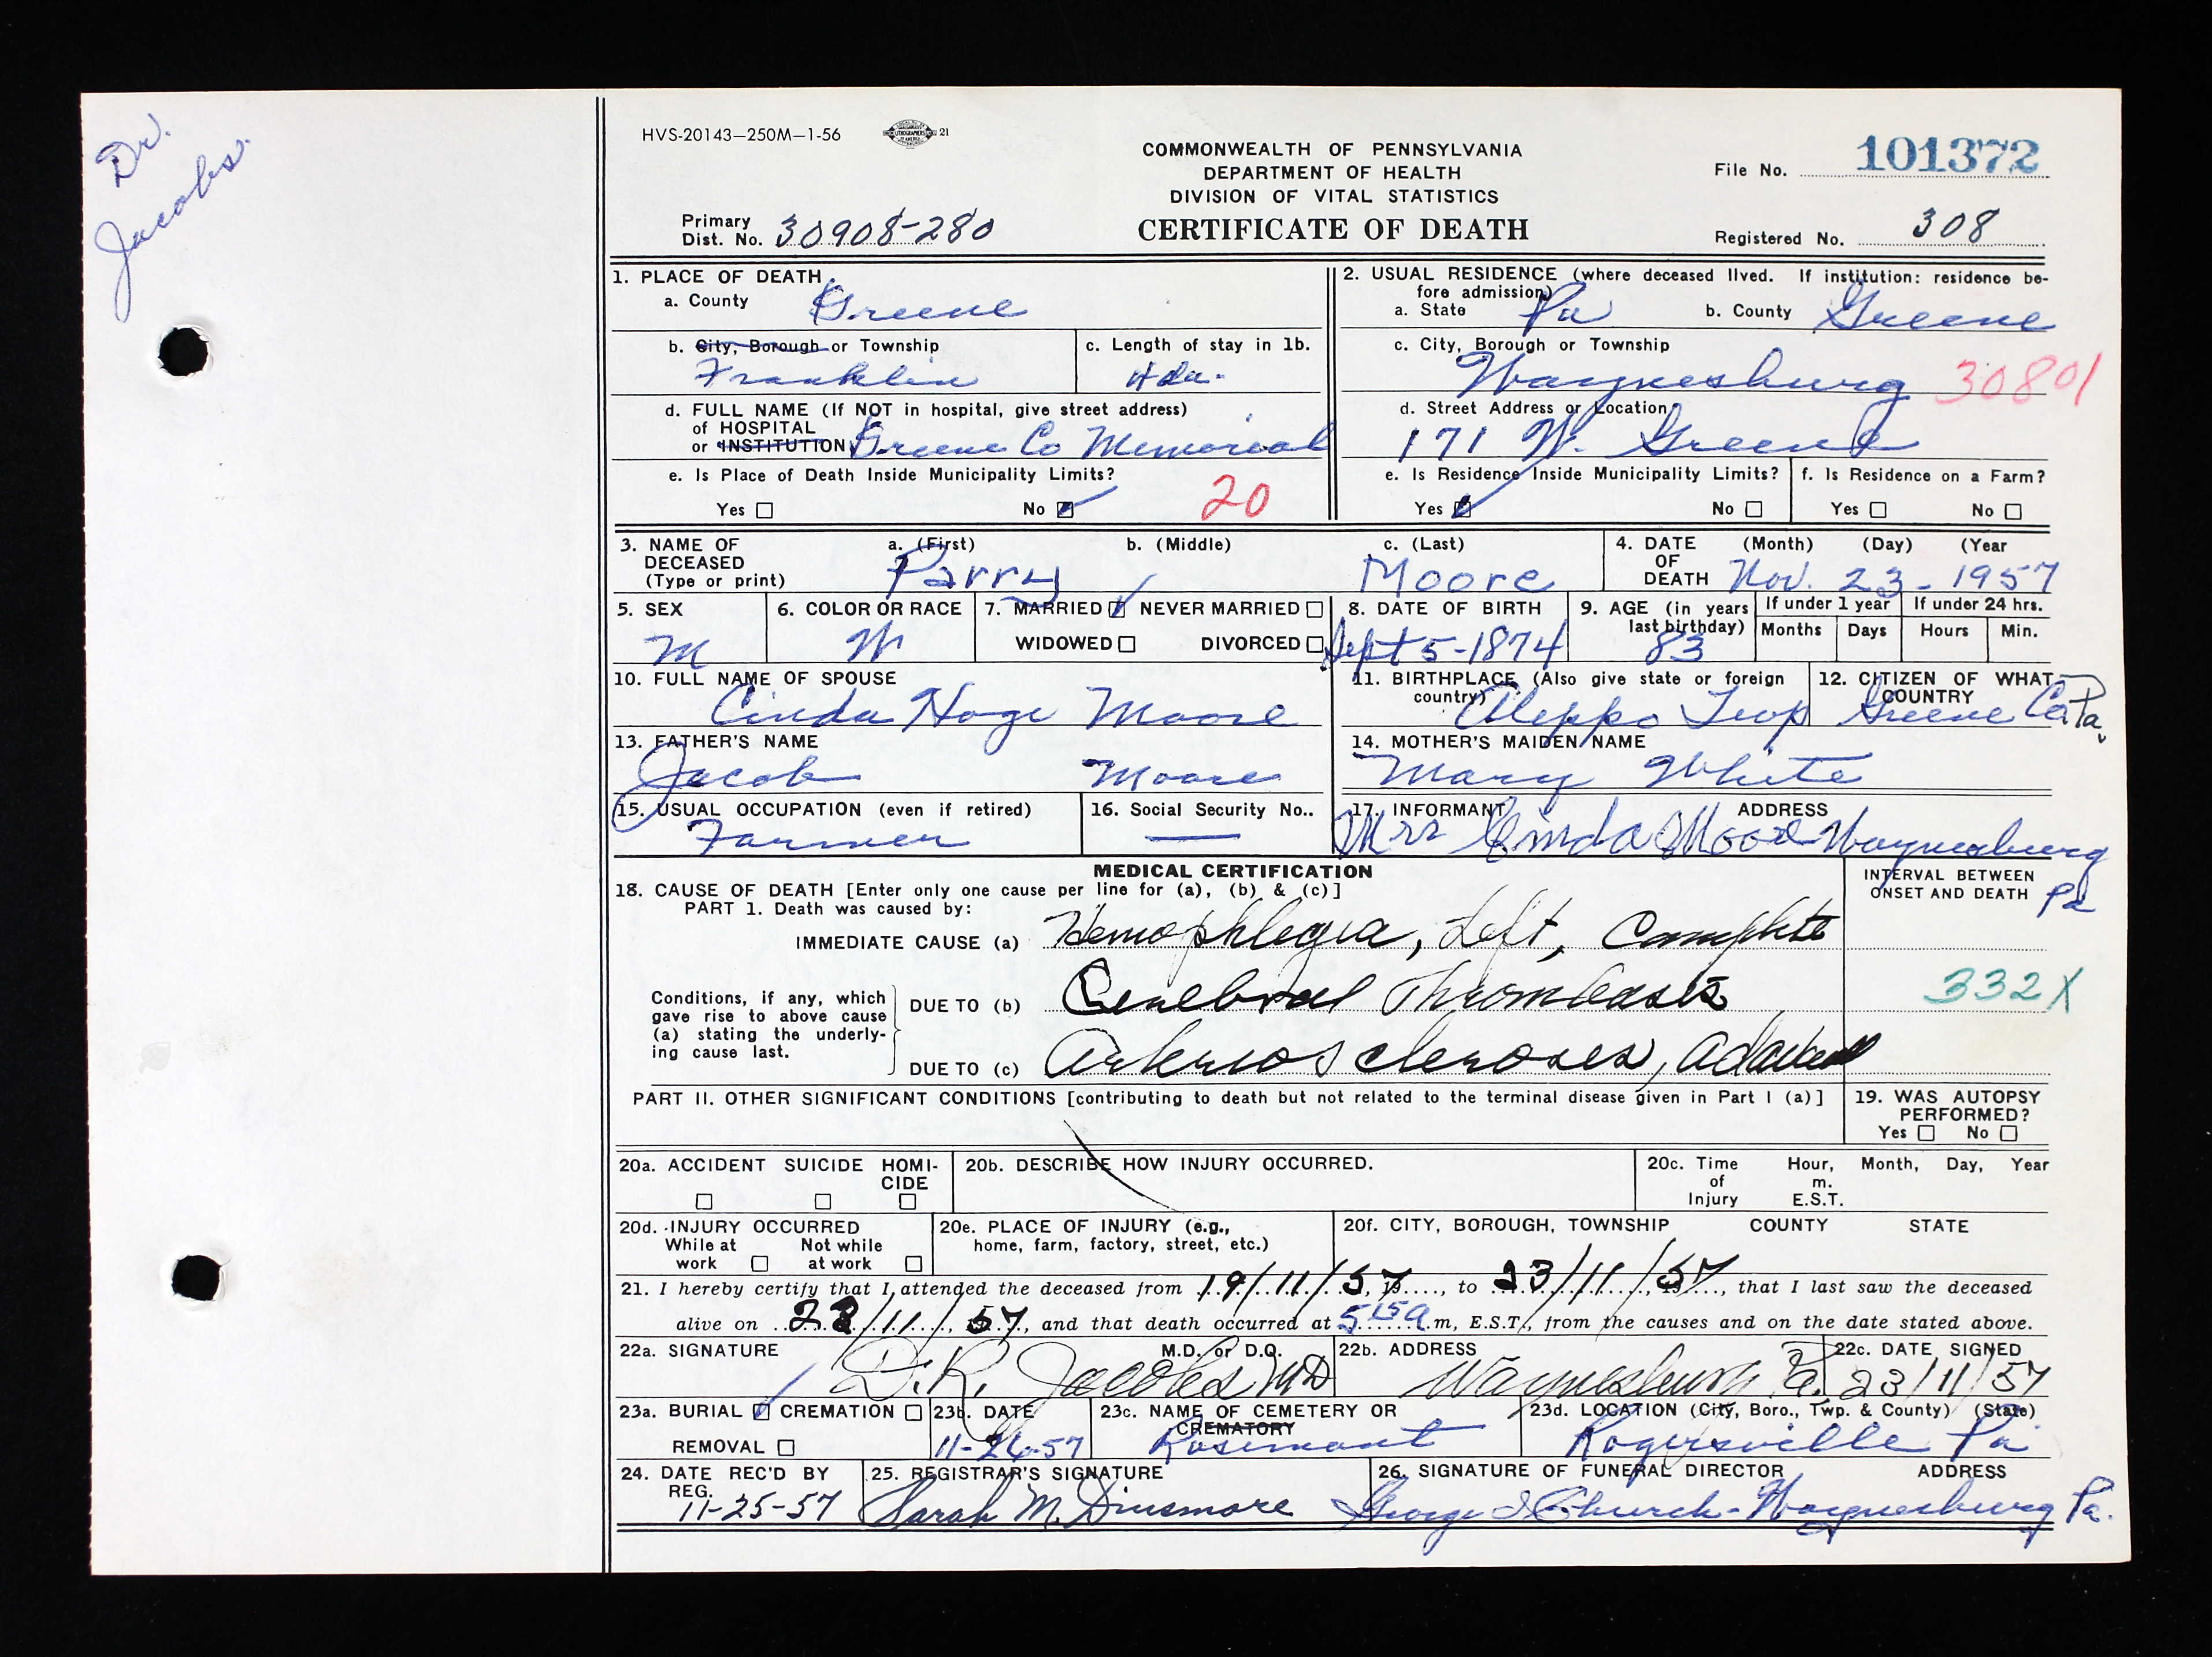 Dr.
Jacobs.
HVS-20143—250M—1-56 21
COMMONWEALTH OF PENNSYLVANIA
DEPARTMENT OF HEALTH
DIVISION OF VITAL STATISTICS
CERTIFICATE OF DEATH
File No. 101372
Primary
Dist. No. 30908-280
Registered No. 308
1. PLACE OF DEATH
a. County Greene
b. City, Borough or Township
Franklin
c. Length of stay in 1b.
4 da.
d. FULL NAME (If NOT in hospital, give street address)
of HOSPITAL
or INSTITUTION Greene Co Memorial
e. Is Place of Death Inside Municipality Limits?
Yes No
20
2. USUAL RESIDENCE (where deceased lived. If institution: residence be-
fore admission)
a. State Pa b. County Greene
c. City, Borough or Township
Waynesburg 30801
d. Street Address or Location
171 W. Greene
e. Is Residence Inside Municipality Limits?
Yes No
f. Is Residence on a Farm?
Yes No
3. NAME OF
DECEASED
(Type or print)
a. (First) b. (Middle) c. (Last)
Parry Moore
4. DATE
OF
DEATH
(Month) (Day) (Year
Nov. 23- 1957
5. SEX
M
6. COLOR OR RACE
W
7. MARRIED NEVER MARRIED
WIDOWED DIVORCED
8. DATE OF BIRTH
Sept 5-1874
9. AGE (in years
last birthday)
83
If under 1 year
Months Days
If under 24 hrs.
Hours Min.
10. FULL NAME OF SPOUSE
Cinda Hoge Moore
11. BIRTHPLACE (Also give state or foreign
country)
Aleppo Twp
12. CITIZEN OF WHAT
COUNTRY
Greene Co Pa.
13. FATHER'S NAME
Jacob Moore
14. MOTHER'S MAIDEN NAME
Mary White
15. USUAL OCCUPATION (even if retired)
Farmer
16. Social Security No..
—
17. INFORMANT ADDRESS
Mrs Cinda Moore Waynesburg
Pa
MEDICAL CERTIFICATION
18. CAUSE OF DEATH [Enter only one cause per line for (a), (b) & (c)]
PART 1. Death was caused by:
INTERVAL BETWEEN
ONSET AND DEATH
IMMEDIATE CAUSE (a) Hemophlegia, Left, Complete
Conditions, if any, which
gave rise to above cause
(a) stating the underly-
ing cause last.
DUE TO (b) Cerebral Thrombosis
332X
DUE TO (c) Arteriosclerosis,
PART II. OTHER SIGNIFICANT CONDITIONS [contributing to death but not related to the terminal disease given in Part I (a)]
19. WAS AUTOPSY
PERFORMED?
Yes No
20a. ACCIDENT SUICIDE HOMI-
CIDE
20b. DESCRIBE HOW INJURY OCCURRED.
20c. Time
of
Injury
Hour, Month, Day, Year
m.
E.S.T.
20d. INJURY OCCURRED
While at
work
Not while
at work
20e. PLACE OF INJURY (e.g.,
home, farm, factory, street, etc.)
20f. CITY, BOROUGH, TOWNSHIP COUNTY STATE
21. I hereby certify that I attended the deceased from 19/11/57, 19...., to 23/11/57, 19...., that I last saw the deceased
alive on 23/11/57, and that death occurred at 5 15 a.m, E.S.T., from the causes and on the date stated above.
22a. SIGNATURE M.D. or D.O.
D.R. Jacobs MD
22b. ADDRESS
Waynesburg Pa.
22c. DATE SIGNED
23/11/57
23a. BURIAL CREMATION
REMOVAL
23b. DATE
11-26-57
23c. NAME OF CEMETERY OR
CREMATORY
Rosemont
23d. LOCATION (City, Boro., Twp. & County) (State)
Rogersville Pa
24. DATE REC'D BY
REG.
11-25-57
25. REGISTRAR'S SIGNATURE
Sarah M. Dinsmore
26. SIGNATURE OF FUNERAL DIRECTOR ADDRESS
George I Church - Waynesburg Pa.